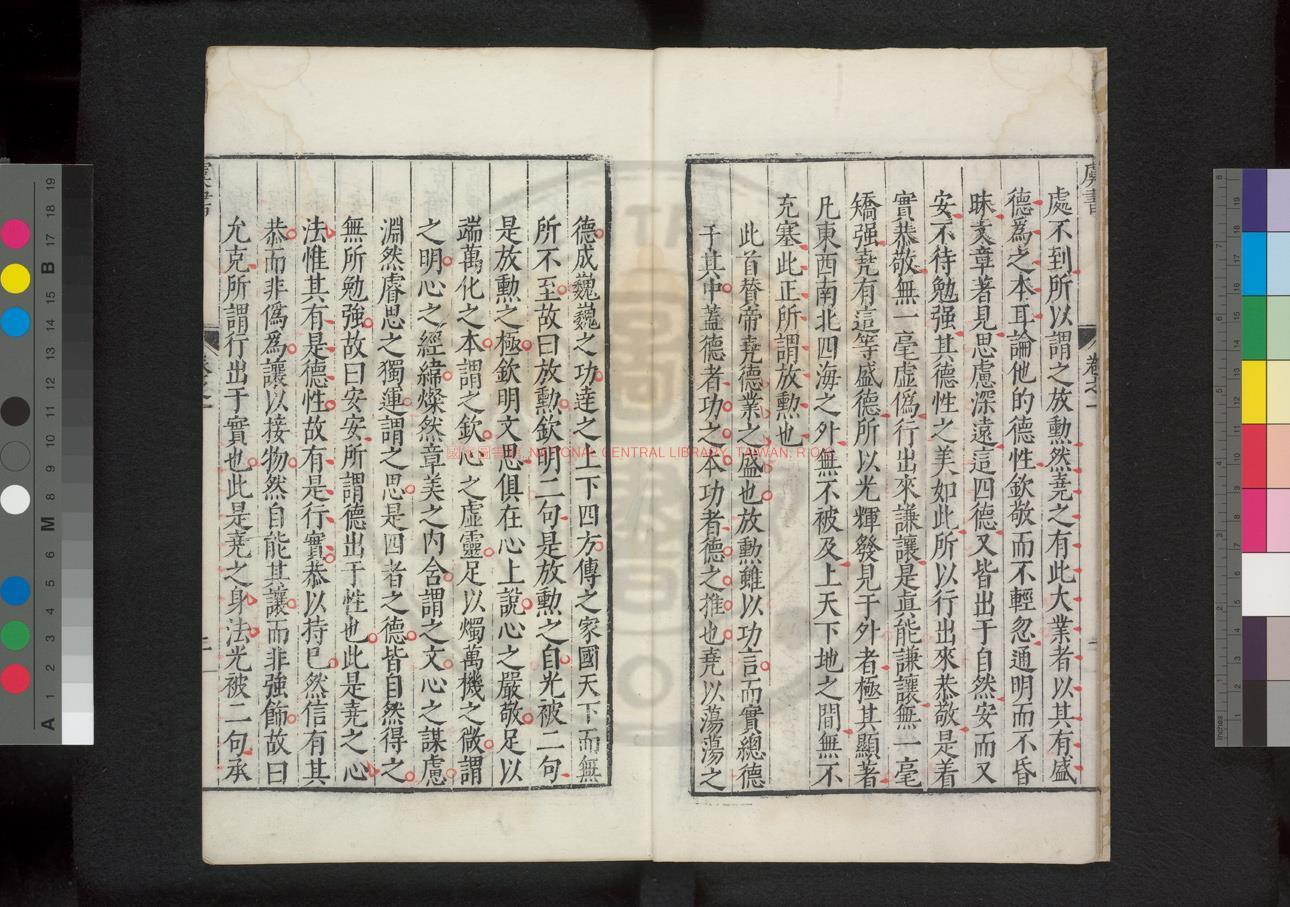 虞書
卷之一
處不到所以謂之放勳然堯之有此大業者以其有盛
德為之本耳論他的德性欽敬而不輕忽通明而不昏
昧文章著見思慮深遠這四德又皆出于自然安而又
安不待勉强其德性之美如此所以行出來恭敬是着
實恭敬無一毫虛偽行出來謙讓是真能謙讓無一毫
矯强堯有這等盛德所以光輝發見于外者極其顯著
凡東西南北四海之外無不被及上天下地之間無不
充塞此正所謂放勳也
此首贊帝堯德業之盛也放勳雖以功言而實總德
于其中蓋德者功之本功者德之推也堯以蕩蕩之
德成巍巍之功達之上下四方傳之家國天下而無
所不至故曰放勳欽明二句是放勳之自光被二句
是放勳之極欽明文思俱在心上說心之嚴敬足以
端萬化之本謂之欽心之虛靈足以燭萬機之微謂
之明心之經緯燦然章美之內含謂之文心之謀慮
淵然睿思之獨運謂之思是四者之德皆自然得之
無所勉強故曰安安所謂德出于性也此是堯之心
法惟其有是德性故有是行實恭以持己然信有其
恭而非偽為讓以接物然自能其讓而非強飾故曰
允克所謂行出于實也此是堯之身法光被二句承
虞書
卷之一
國家圖書館 NATIONAL CENTRAL LIBRARY, TAIWAN, R.O.C